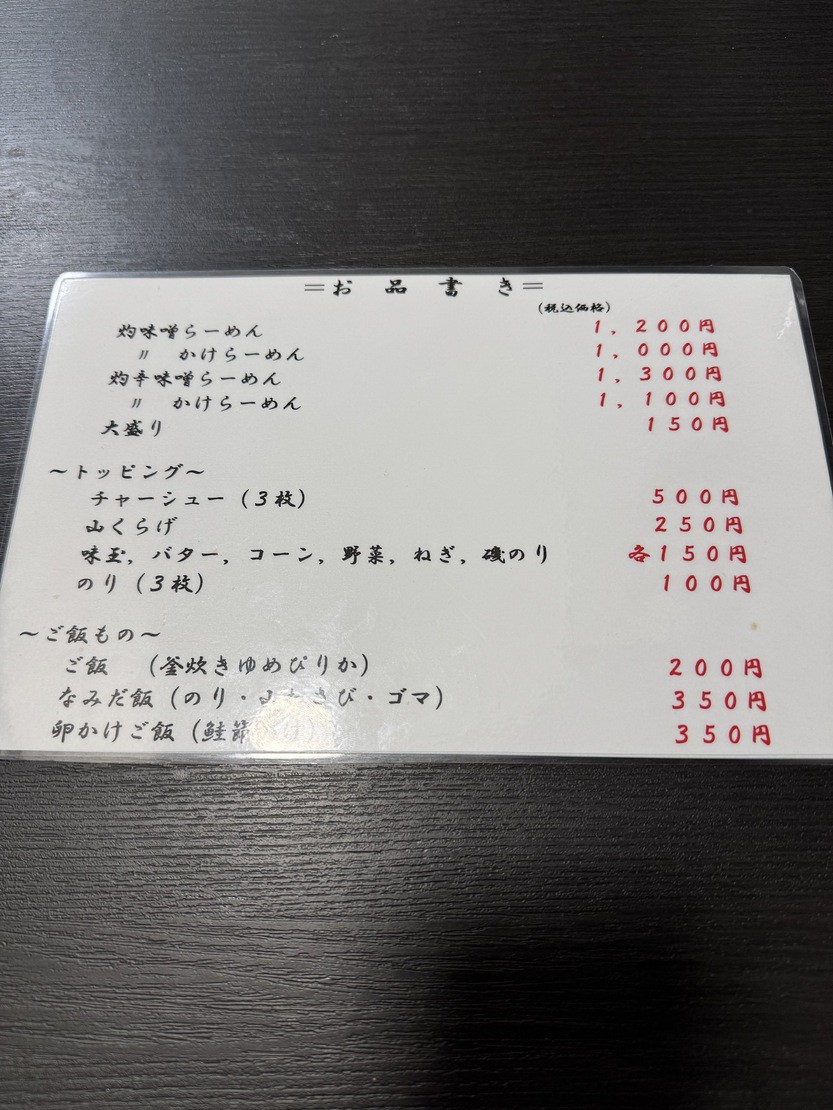 ＝お品書き＝
(税込価格)
灼味噌らーめん 1,200円
〃 かけらーめん 1,000円
灼辛味噌らーめん 1,300円
〃 かけらーめん 1,100円
大盛り 150円
～トッピング～
チャーシュー(3枚) 500円
山くらげ 250円
味玉,バター,コーン,野菜,ねぎ,磯のり 各150円
のり(3枚) 100円
～ご飯もの～
ご飯 (釜炊きゆめぴりか) 200円
なみだ飯(のり・山わさび・ゴマ) 350円
卵かけご飯(鮭節 350円